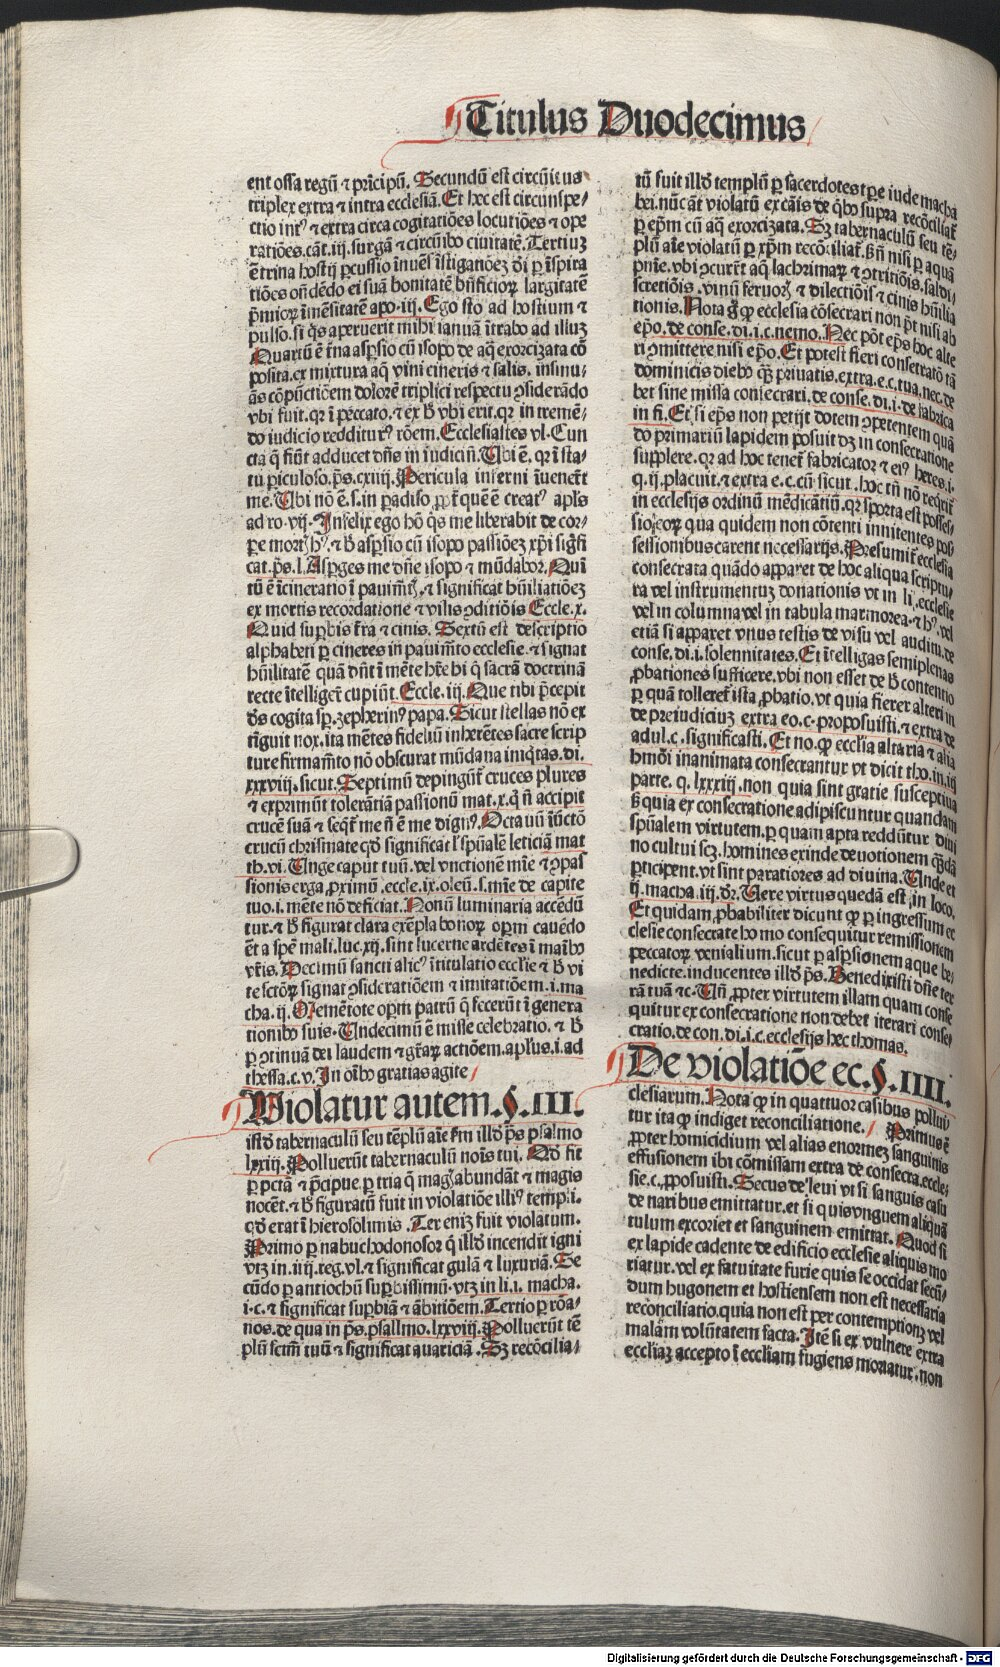 Titulus Duodecimus
ent ossa regū ⁊ prīcipū. Secundū est circūitus
triplex extra ⁊ intra ecclesiā. Et hec est circūnspe⸗
ctio intꝰ ⁊ extra circa cogitatiōes locutiōes ⁊ ope
ratiōes. cāt. iij. surgā ⁊ circūibo ciuitatē. Tertiuꝫ
ē trina hostij ꝑcussio īnuēs īstigatiōeꝫ dī ꝑ īspira
tiōes oñdēdo ei suā bonitatē bñficioꝝ largitatē
p̄mioꝝ īmēsitatē apo. iij. Ego sto ad hostium ⁊
pulso. si q̄s aperuerit mihi ianuā ītrabo ad illuꝫ
Quartū ē t̄na asꝑsio cū isopo de aq̄ exorcizata cō
posita. ex mixtura aq̄ vini cineris ⁊ salis. insinu⸗
ās cōpūctiōem dolorē triplici respectu ꝯsiderādo
vbi fuit. qꝛ ī peccato. ⁊ ex ħ vbi erit. qꝛ in tremē⸗
do iudicio redditurꝰ rōem. Ecclesiastes vl. Cun
cta q̄ fiūt adducet dñs in iudiciū. Ubi ē. qꝛ ī sta⸗
tu ꝑiculoso. p̄s. cxiiij. Pericula inferni īuenēt
me. Ubi nō ē. s. in ꝑadiso ꝓpt̄ quē ē creatꝰ apls
ad ro. vij. Infelix ego hō q̄s me liberabit de cor⸗
ꝑe mortꝭ hꝰ. ⁊ ħ asꝑsio cū isopo passiōeꝫ xp̄i sigñfi
cat. p̄s. l. Asꝑges me dñe isopo ⁊ mūdabor. Quī
tū ē īcineratio ī pauim̄tꝭ. ⁊ significat hūiliatiōeꝫ
ex mortis recordatione ⁊ vilis ꝯditiōis Eccle. x.
Quid suꝑbis t̄ra ⁊ cinis. Sextū est descriptio
alphabeti ꝑ cineres in pauim̄to ecclesie. ⁊ signat
hūilitatē quā dn̄t ī mēte hr̄e hi q̄ sacrā doctrinā
recte ītelligēt cupiūt. Eccle. iij. Que tibi p̄cepit
ds̄ cogita sꝑ. zepherinꝰ papa. Sicut stellas nō ex
tīguit nox. ita mētes fideliū inherētes sacre scrip
ture firmam̄to nō obscurat mūdana iniq̄tas. di.
xxxviij. sicut. Septimū depingūt cruces plures
⁊ exprimūt tolerātiā passionū mat. x. q̄ nō accipit
crucē suā ⁊ seq̄t me nō ē me dignꝰ. Octauū īūctō
crucū chrismate qd̄ significat lꝰ spūalē leticiā mat
th. vi. Unge caput tuū. vel vnctionē mīe ⁊ ꝯpas
sionis erga ꝓximū. eccle. ix. oleū. s. mīe de capite
tuo. i. mēte nō deficiat. Nonū luminaria accēdū
tur. ⁊ ħ figurat clara exēpla bonoꝝ opꝝ cauēdo
ēt a spē mali. luc. xij. sint lucerne ardētes ī maībꝰ
vr̄is. Decimū sancti alicꝰ ītitulatio ecclie ⁊ ħ vi
te sctōꝝ signat ꝯsideratiōem ⁊ imitatiōem. i. ma
cha. ij. Memētote opꝝ patrū q̄ fecerūt ī genera
tionibꝰ suis. Undecimū ē misse celebratio. ⁊ ħ
ꝑ ꝯtinuā dei laudem ⁊ gr̄aꝝ actiōem. aplus. i. ad
thessa. c. v. In oībꝰ gratias agite
Violatur autem. §. III.
istd̄ tabernaculū seu tēplū aīe s̄m illd̄ p̄s psalmo
lxxiij. Polluerūt tabernaculū nois tui. Qd̄ fit
ꝑ pctā ⁊ p̄cipue ꝑ tria q̄ magꝭ abundāt ⁊ magis
nocēt. ⁊ ħ figuratū fuit in violatiōe illiꝰ templi.
qd̄ erat ī hierosolimis. Ter eniꝫ fuit violatum.
Primo ꝑ nabuchodonosor q̄ illd̄ incendit igni
vtꝫ in. iiij. reg. vl. ⁊ significat gulā ⁊ luxuriā. Se
cūdo ꝑ antiochū suꝑbissimū. vtꝫ in li. i. macha.
i. c. ⁊ significat suꝑbiā ⁊ ābitiōem. Tertio ꝑ rōa⸗
nos. de qua in p̄s. psallmo. lxxviij. Polluerūt tē
plū sctm̄ tuū ⁊ significat auariciā. Sꝫ recōcilia⸗
tū fuit illd̄ templū ꝑ sacerdotes tꝑe iude macha
bei. nūc āt violatū ex cāis de q̄bꝰ supra recōciliat̄
ꝑ ep̄m cū aq̄ exorcizata. Sꝫ tabernaculū seu tē⸗
plū aīe violatū ꝑ xp̄m recōciliat̄. ħn̄ nisi ꝑ aquā
pn̄ie. vbi ꝯcurrt̄ aq̄ lachrimaꝝ ⁊ ꝯtritiōis. saldi⸗
scretiōis. vinū feruoꝝ ⁊ dilectiōis ⁊ cinis hūilia
tionis. Nota ḡ ꝙ ecclesia cōsecrari non pt̄ nisi ab
ep̄o. de conse. di. i. c. nemo. Nec pōt ep̄s hoc alte
ri ꝯmittere nisi ep̄o. Et potest fieri consetratō tā
dominicis diebꝰ qꝫ priuatis. extra. e. c. tua. nec. de
bet sine missa consecrari. de conse. di. i. de fabrica
in fi. Et si ep̄s non petijt dotem ꝯpetentem quā
do primariū lapidem posuit dꝫ in consecratione
supplere. qꝛ ad hoc tenet̄ fabricator ⁊ eiꝰ heres. i.
q. ij. placuit. ⁊ extra e. c. cū sicut. hoc tn̄ nō reqrit̄
in ecclesijs ordinū mēdicātiū. qꝛ sporta est posses⸗
sio eoꝝ qua quidem non cōtenti innitentes pos
sessionibus carent necessarijs. Presumit̄ ecclesia
consecrata quādo apparet de hoc aliqua scriptu⸗
ra vel instrumentuꝫ donationis vt in li. ecclesie
vel in columna vel in tabula marmorea. ⁊ hꝰ. vel
etiā si apparet vnus testis de visu vel auditu. de
conse. di. i. solennitates. Et ītelligas semiplenas
ꝓbationes sufficere. vbi non esset de ħ contentio
ꝑ quā tolleret̄ ista ꝓbatio. vt quia fieret alteri in
de preiudiciuꝫ extra eo. c. proposuisti. ⁊ extra de
adul. c. significasti. Et no. ꝙ ecclīa altaria ⁊ alia
hmōi inanimata consecrantur vt dicit tho. in. iij
parte. q. lxxxiij. non quia sint gratie susceptiua
sꝫ quia ex consecratione adipiscuntur quandam
spūalem virtutem. ꝑ quam apta reddūtur diui
no cultui scꝫ. homines exinde deuotionem q̄dā
ꝑticipent. vt sint paratiores ad diuina. Unde et
ij. macha. iij. dꝛ. Uere virtus quedā est in loco.
Et quidam ꝓbabiliter dicunt ꝙ ꝑ ingressum ec
clesie consecrate homo consequitur remissionem
peccatoꝝ venialium. sicut ꝑ asꝑsionem aque be⸗
nedicte. inducentes illd̄ p̄s. Benedixisti dñe ter
rā tuā ⁊c. Un̄ ꝓpter virtutem illam quam conse
quitur ex consecratione non debet iterari conse⸗
cratio. de con. di. i. c. ecclesijs hec thomas.
De violatiōe ec. §. IIII.
clesiarum. Nota ꝙ in quattuor casibus pollui
tur ita ꝙ indiget reconciliatione. Primus ē
ꝓpter homicidium vel alias enormeꝫ sanguinis
effusionem ibi cōmissam extra de consecra. eccle⸗
sie. c. ꝓposuisti. Secus de leui vt si sanguis casu
de naribus emittatur. et si quis vnguem aliquā
tulum excoriet et sanguinem emittat. Quod si
ex lapide cadente de edificio ecclesie aliquis mo
riatur. vel ex fatuitate furie quis se occidat secū⸗
dum hugonem et hostiensem non est necessaria
reconciliatio. quia non est per contemptionꝫ vel
malam volūtatem facta. Itē si ex vulnere extra
eccliaꝫ accepto ī eccliam fugiens moriatur. non
Digitalisierung gefördert durch die Deutsche Forschungsgemeinschaft - DFG